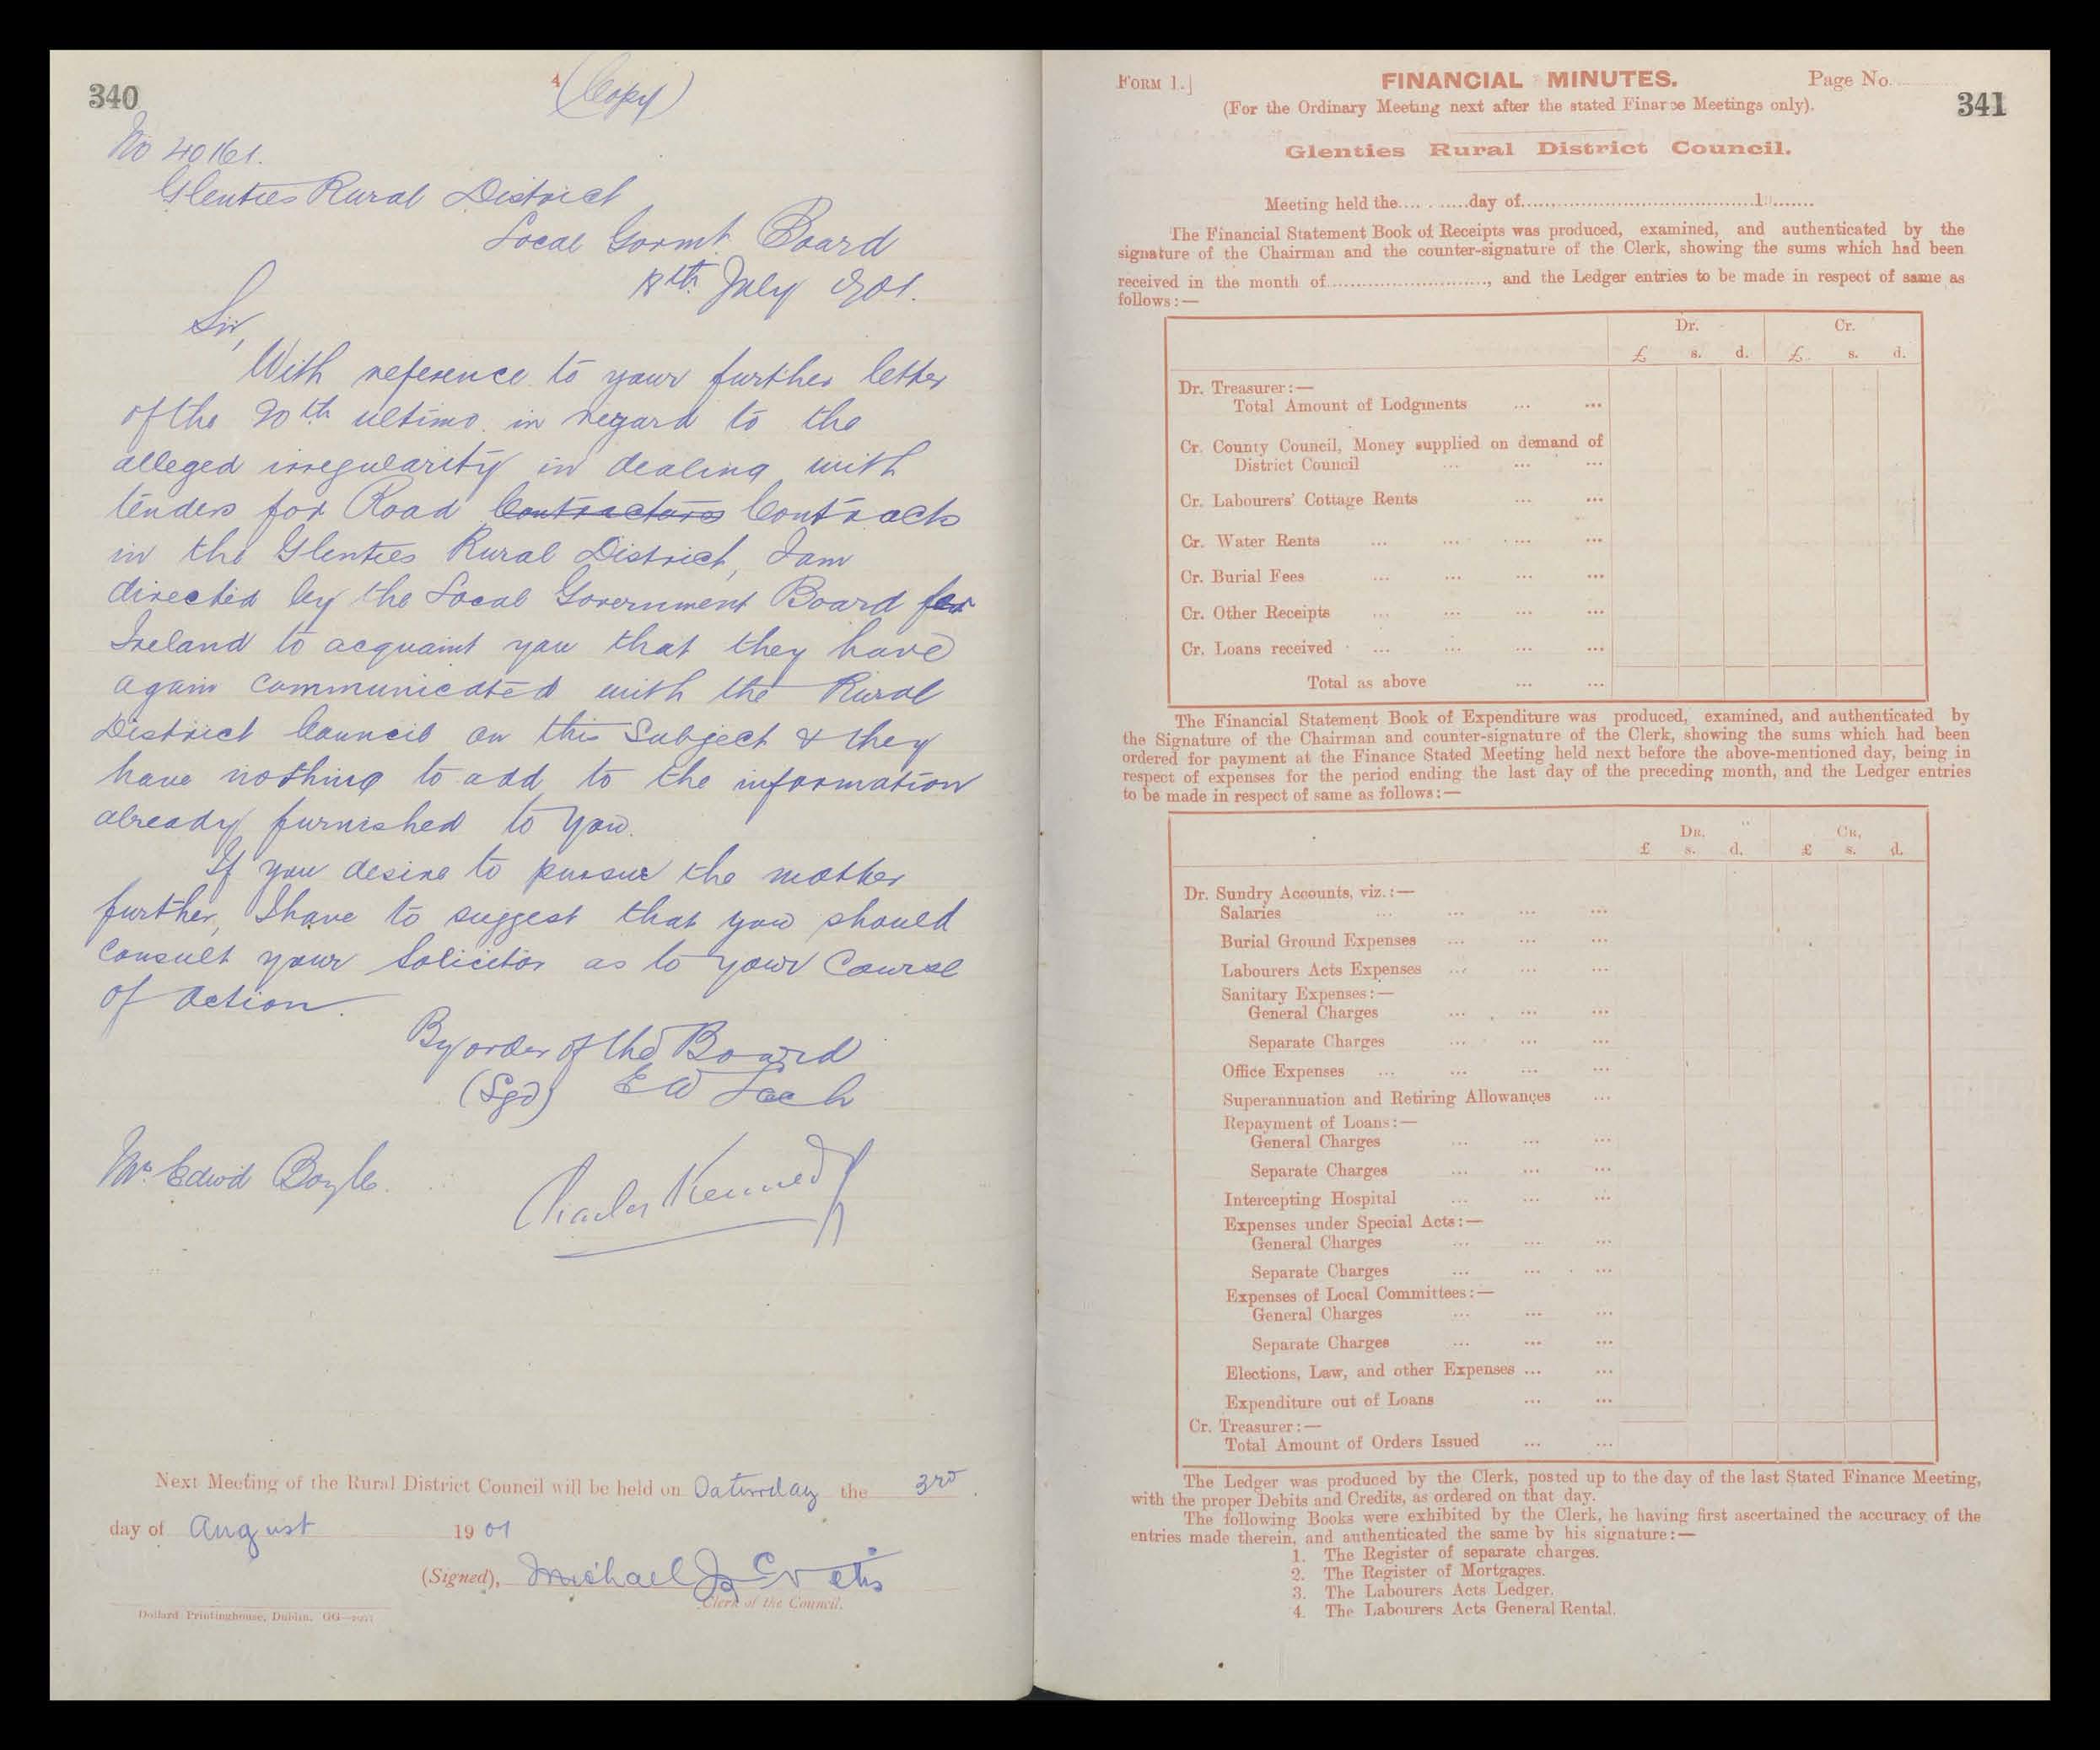 340
4
(Copy)
No 40161.
Glenties Rural District
Local Govmt. Board
18th. July 1901.
Sir,
With reference to your further letter
of the 20th ultimo in regard to the
alleged irregularity in dealing with
tenders for Road Contractors Contracts
in the Glenties Rural District, I am
directed by the Local Government Board for
Ireland to acquaint you that they have
again communicated with the Rural
District Council on this Subject & they
have nothing to add to the information
already furnished to you.
If you desire to pursue the matter
further, I have to suggest that you should
consult your Solicitor as to your Course
of action.
By order of the Board
(Sgd) E W
Mr. Edwd Boyle.
Charles Kennedy
Next Meeting of the Rural District Council will be held on Saturday the 3rd.
day of August 1901
(Signed), Michael
Clerk of the Council.
Dollard Printinghouse, Dublin, GG
FORM 1.]
FINANCIAL MINUTES.
Page No.
341
(For the Ordinary Meeting next after the stated Finance Meetings only).
Glenties Rural District Council.
Meeting held the.... . ......day of............................................1 ........
The Financial Statement Book of Receipts was produced, examined, and authenticated by the
signature of the Chairman and the counter-signature of the Clerk, showing the sums which had been
received in the month of............................, and the Ledger entries to be made in respect of same as
follows:—
Dr. Cr.
£ s. d. £ s. d.
Dr. Treasurer:—
Total Amount of Lodgments ... ...
Cr. County Council, Money supplied on demand of
District Council ... ... ...
Cr. Labourers' Cottage Rents ... ...
Cr. Water Rents ... ... ... ...
Cr. Burial Fees ... ... ... ...
Cr. Other Receipts ... ... ... ...
Cr. Loans received ... ... ... ...
Total as above ... ...
The Financial Statement Book of Expenditure was produced, examined, and authenticated by
the Signature of the Chairman and counter-signature of the Clerk, showing the sums which had been
ordered for payment at the Finance Stated Meeting held next before the above-mentioned day, being in
respect of expenses for the period ending the last day of the preceding month, and the Ledger entries
to be made in respect of same as follows:—
DR. CR.
£ s. d. £ s. d.
Dr. Sundry Accounts, viz.:—
Salaries ... ... ... ...
Burial Ground Expenses ... ... ...
Labourers Acts Expenses ... ... ...
Sanitary Expenses:—
General Charges ... ... ...
Separate Charges ... ... ...
Office Expenses ... ... ... ...
Superannuation and Retiring Allowances ...
Repayment of Loans:—
General Charges ... ... ...
Separate Charges ... ... ...
Intercepting Hospital ... ... ...
Expenses under Special Acts:—
General Charges ... ... ...
Separate Charges ... ... ...
Expenses of Local Committees:—
General Charges ... ... ...
Separate Charges ... ... ...
Elections, Law, and other Expenses ... ...
Expenditure out of Loans ... ...
Cr. Treasurer:—
Total Amount of Orders Issued ... ...
The Ledger was produced by the Clerk, posted up to the day of the last Stated Finance Meeting,
with the proper Debits and Credits, as ordered on that day.
The following Books were exhibited by the Clerk, he having first ascertained the accuracy of the
entries made therein, and authenticated the same by his signature:—
1. The Register of separate charges.
2. The Register of Mortgages.
3. The Labourers Acts Ledger.
4. The Labourers Acts General Rental.